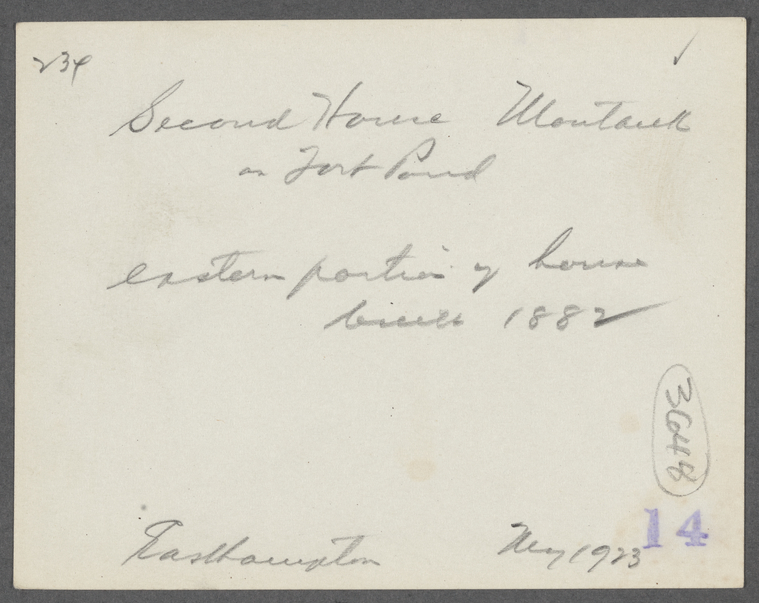 234
Second House Montauk
on Fort Pond
eastern portion of house
built 1882
3648
14
Easthampton May 1923